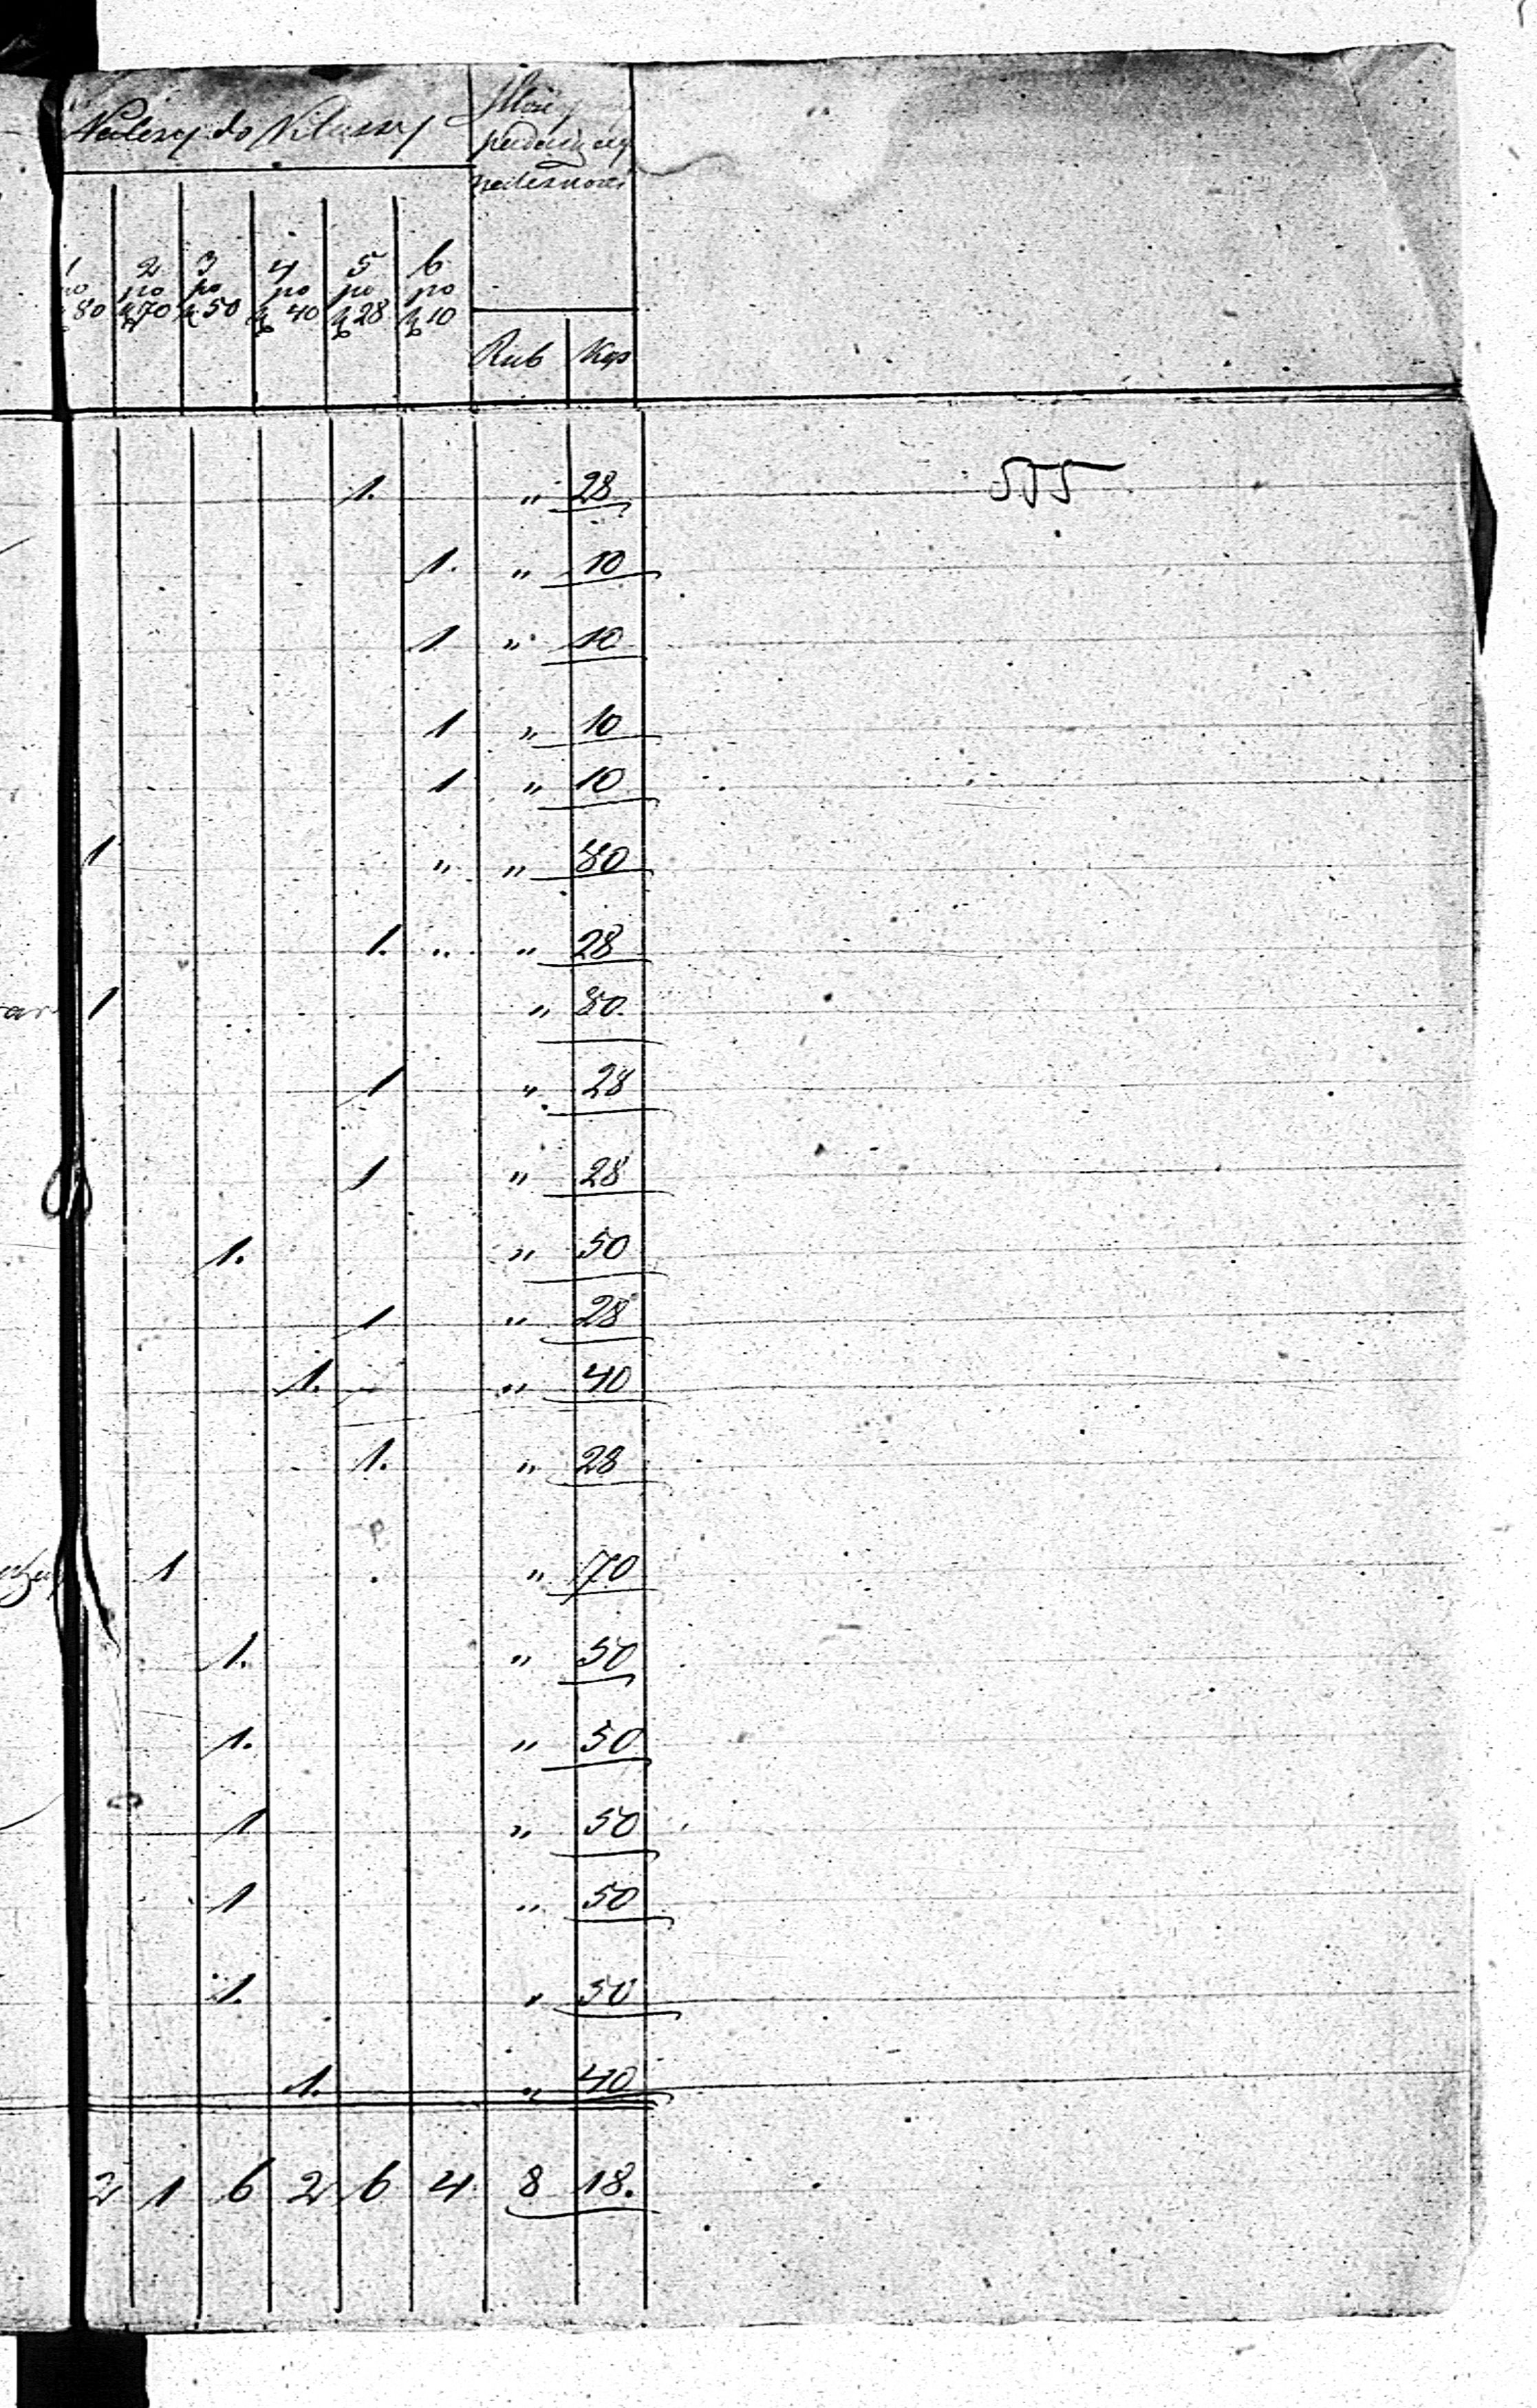 Należy do Klassy
1 2 3 4 5 6
po po po po po
80 k 70 k 50 k 40 k 28 k 10
Rub Kop
555
1. " 28
1. " 10
1 " 10
1 " 10
1 " 10
1 " " 80
1. " " 28
1 " 80
1 " 28
1 " 28
1. " 50
1 " 28
1. " 40
1. " 28
1 " 70
1. " 50
1. " 50
1 " 50
1 " 50
1. " 50
1. " 40
2 1 6 2 6 4 8 18.